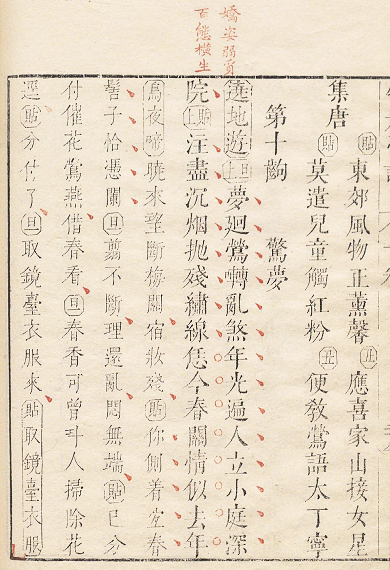 嬌姿弱質
百態橫生
集唐
貼東郊風物正薰馨丑應喜家山接女星
貼莫遣兒童觸紅粉丑便教鶯語太丁寧
第十齣 驚夢
遶地遊旦上夢廻鶯囀亂煞年光遍人立小庭深
院貼上注盡沉烟拋殘繡線恁今春關情似去年
烏夜啼曉來望斷梅關宿妝殘貼你側着宜春
髻子恰憑闌旦翦不斷理還亂悶無端貼已分
付催花鶯燕借春看旦春香可曾叫人掃除花
逕貼分付了旦取鏡臺衣服來貼取鏡臺衣服